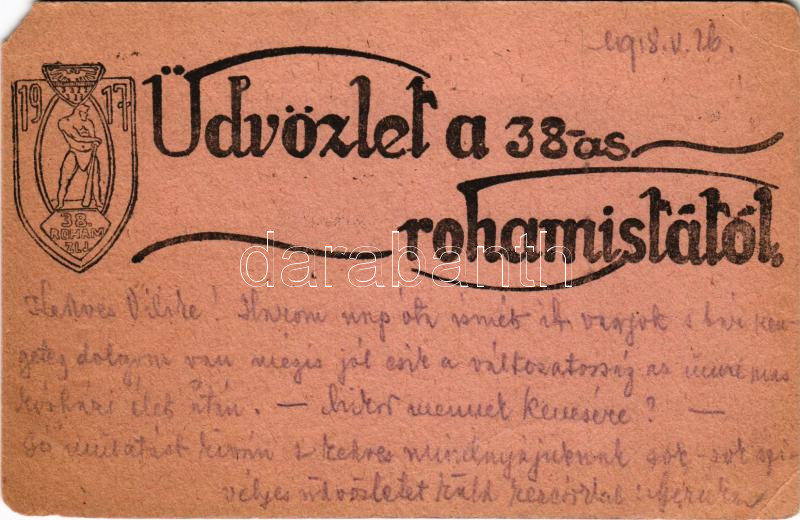 1918.V.26.
1917
Üdvözlet a 38-as
rohamistától.
38.
ROHAM
ZLJ
darabanth
Kedves Vilike! Három nap óta ismét itt vagyok s bár ren-
geteg dolgom van mégis jól esik a változatosság az unalmas
kórházi élet után. — Mikor mennek Kenesére? —
Jó mulatást kíván s kedves mindnyájuknak sok-sok szí-
vélyes üdvözletet küld kézcsókkal: